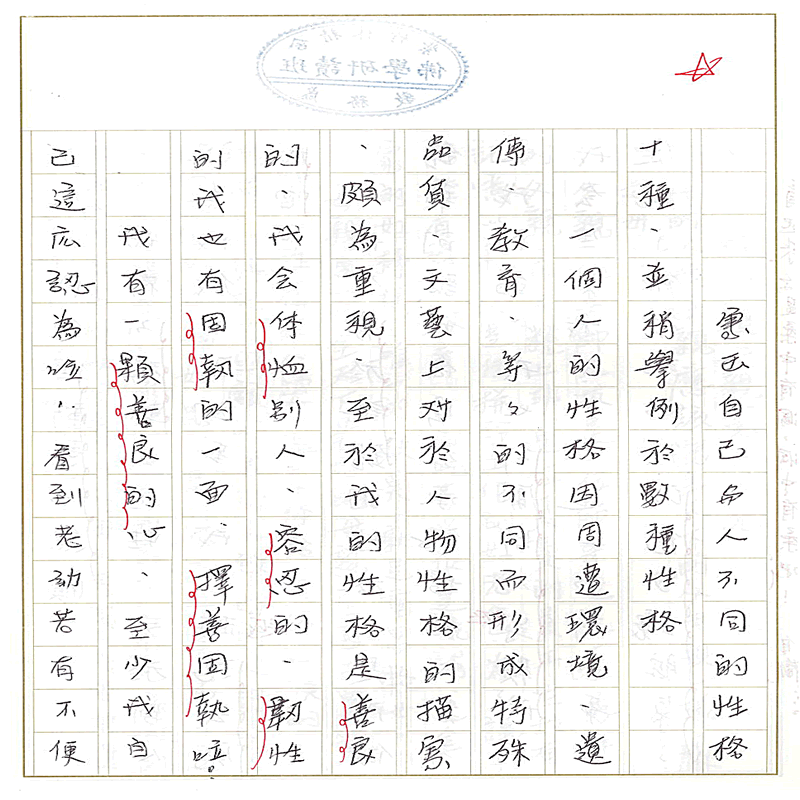 寫出自己与人不同的性格
十種、並稍舉例於數種性格
一個人的性格因周遭環境、遺
傳、教育、等々的不同而形成特殊
品質、文藝上对於人物性格的描寫
、頗為重視、至於我的性格是善良
的、我会体恤别人、容忍的、韌性
的我也有固執的一面、擇善固執唷!
我有一顆善良的心、至少我自
己這広認為啦!看到老幼若有不便
佛學研讀班
教務處